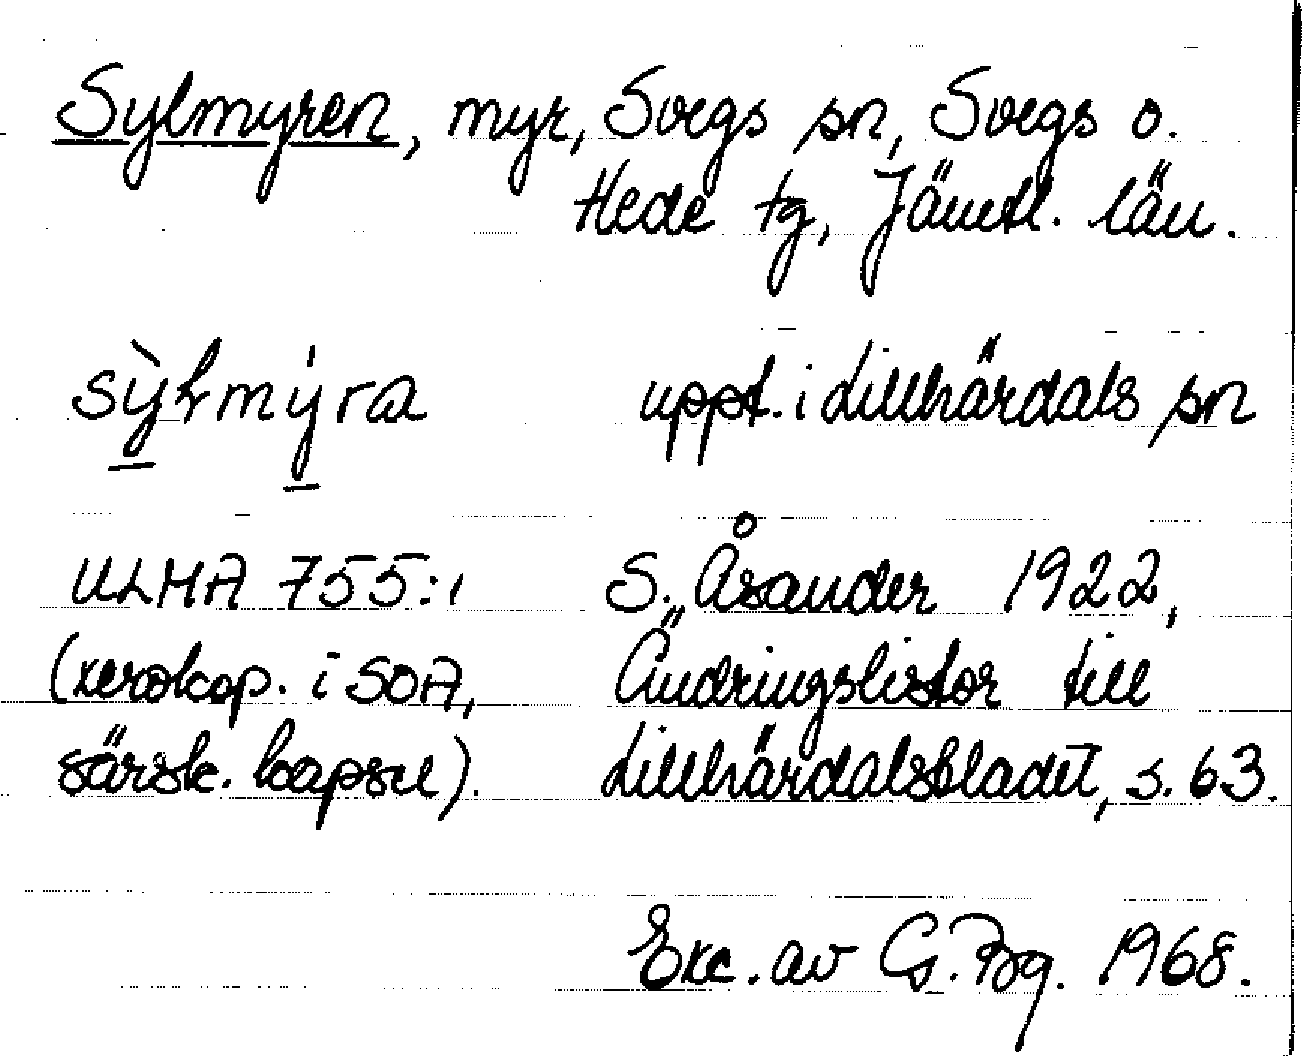 Sylmyren, myr, Svegs sn, Svegs o.
Hede tg, Jämtl. län.
sỳƚmýra uppt. i Lillhärdals sn
ULMA 755:1 S. Åsander 1922,
(xerokop. i SOA, Ändringslistor till
särsk. kapsel). Lillhärdalsbladet, s. 63.
Exc. av G. Bg. 1968.